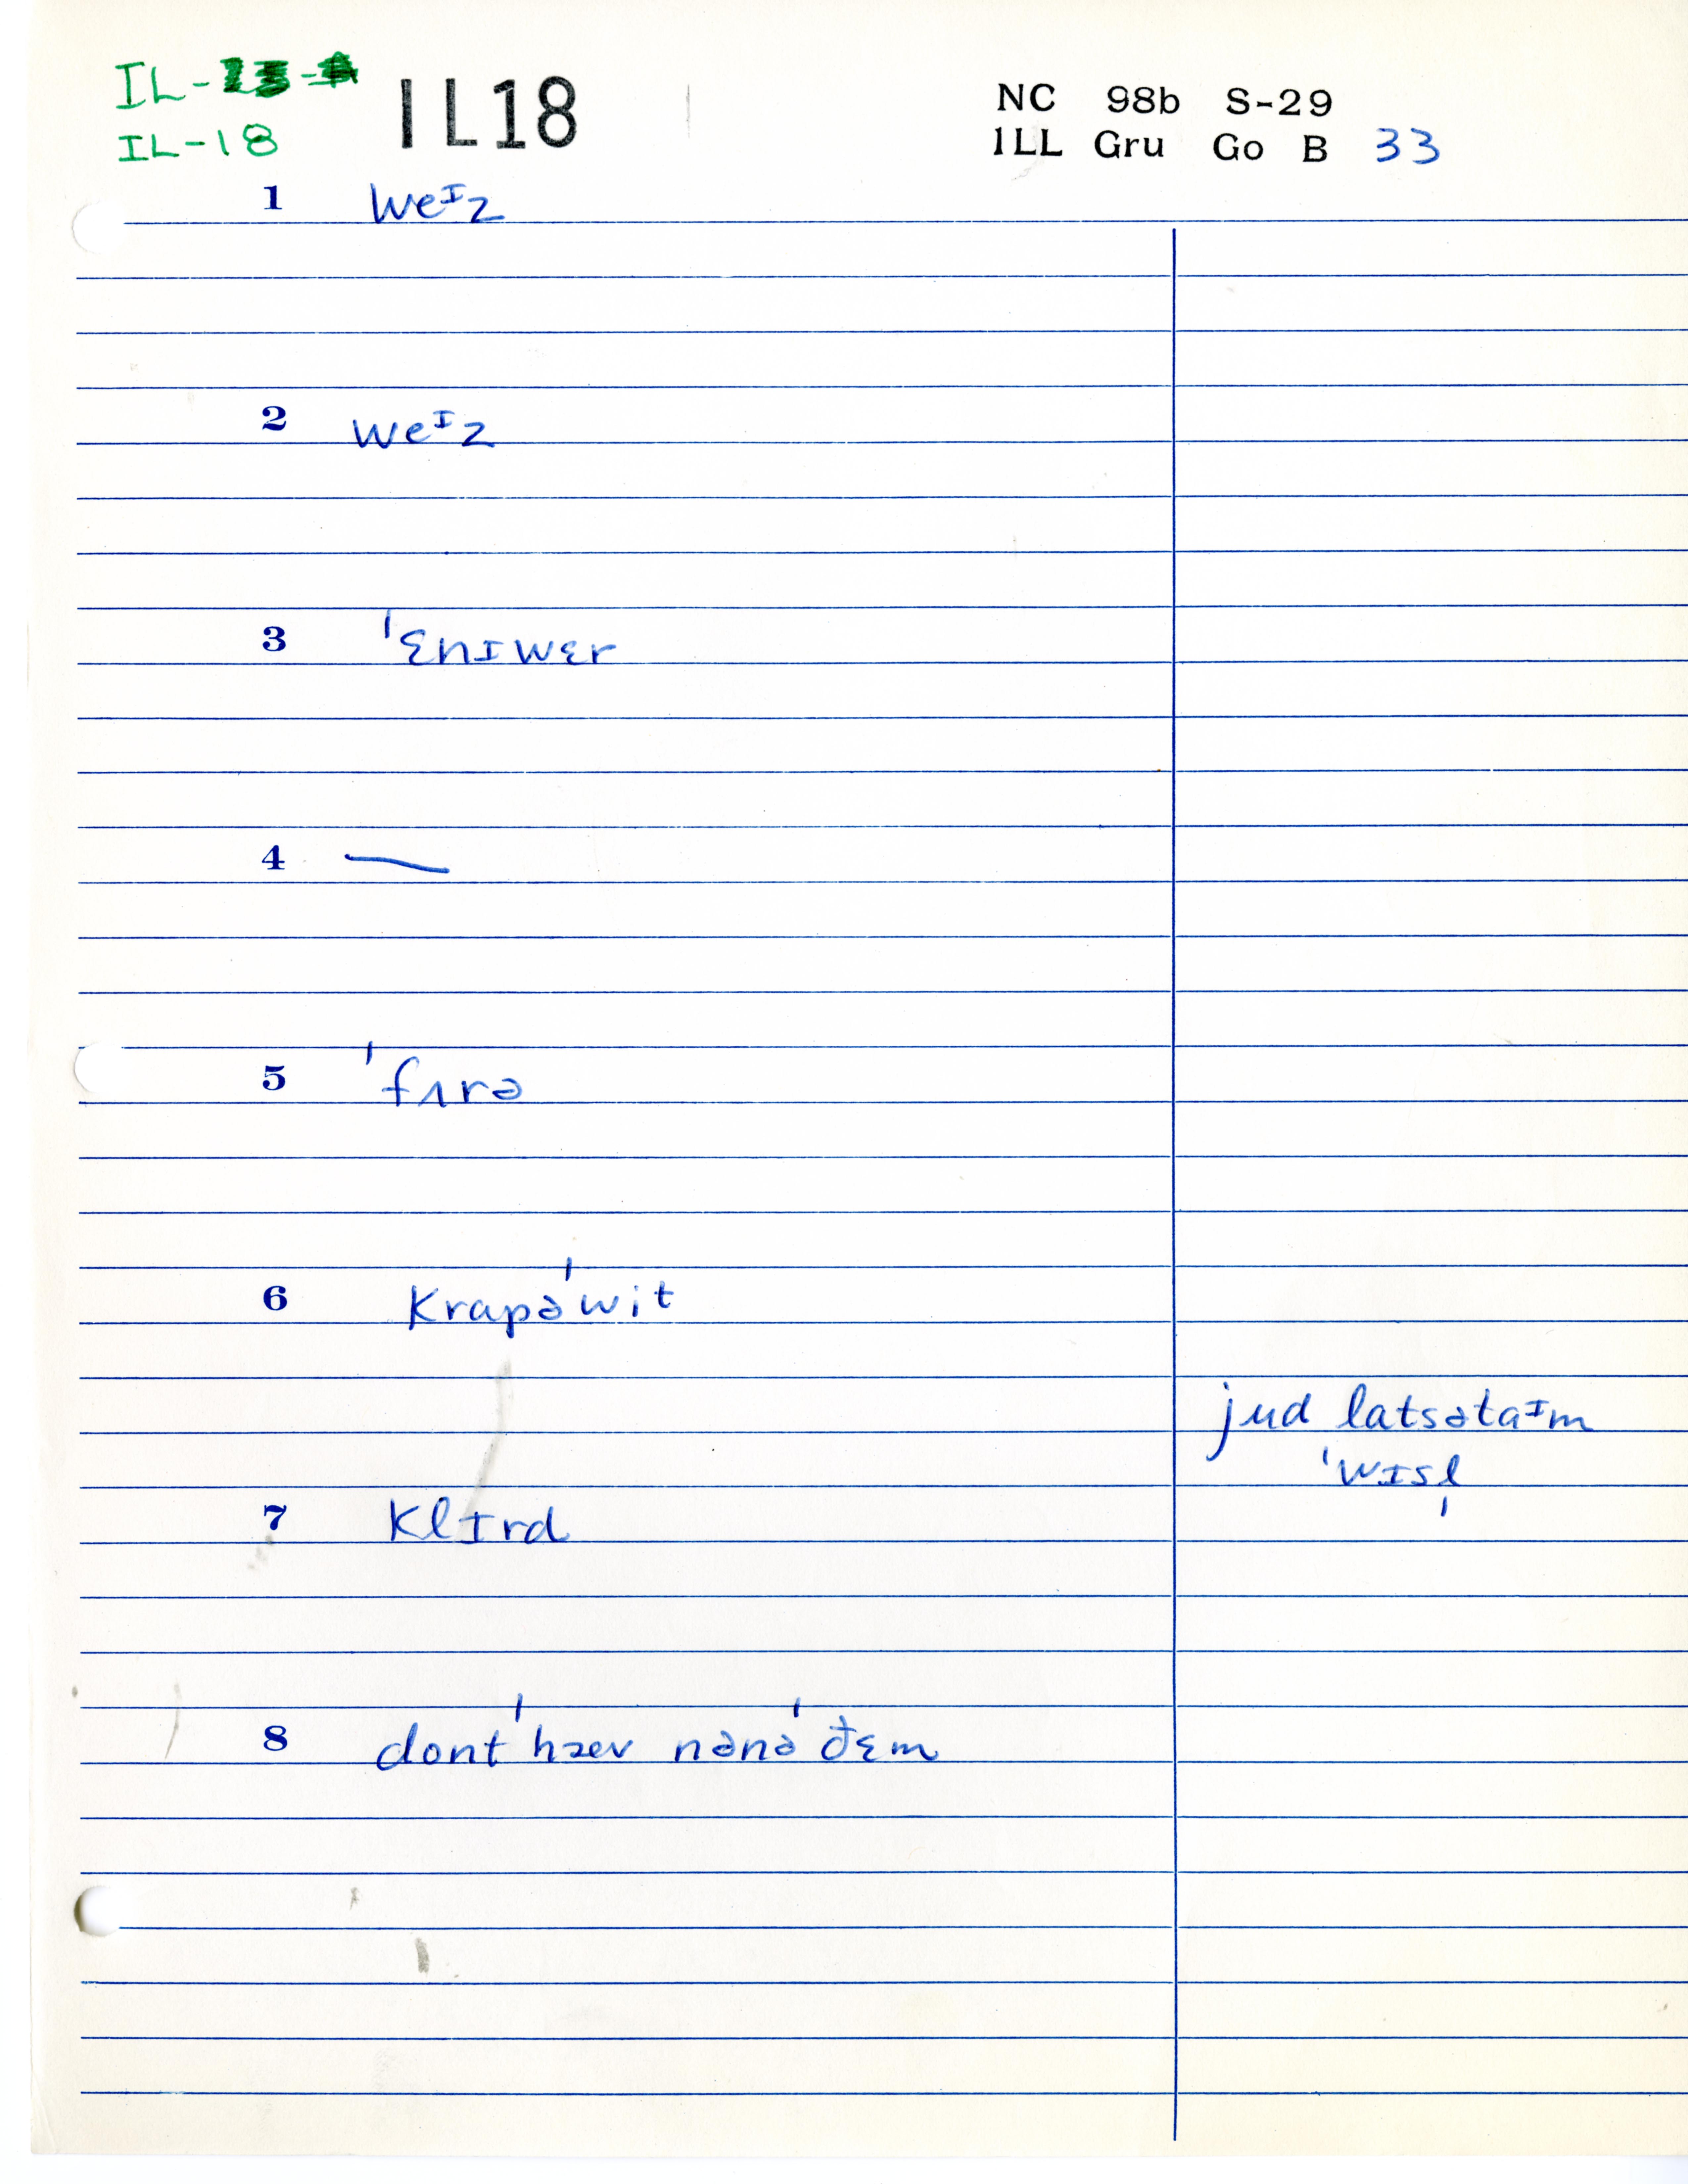 IL-18
IL18
NC 98b S-29
ILL Gru Go B 33
1 weᴵz
2 weᴵz
3 ˈɛnɪwɛr
4 —
5 ˈfʌrə
6 krapəˈwit
jud latsətaᴵm
ˈwɪsl̩
7 klɪrd
8 dontˈhæv nənəˈđɛm